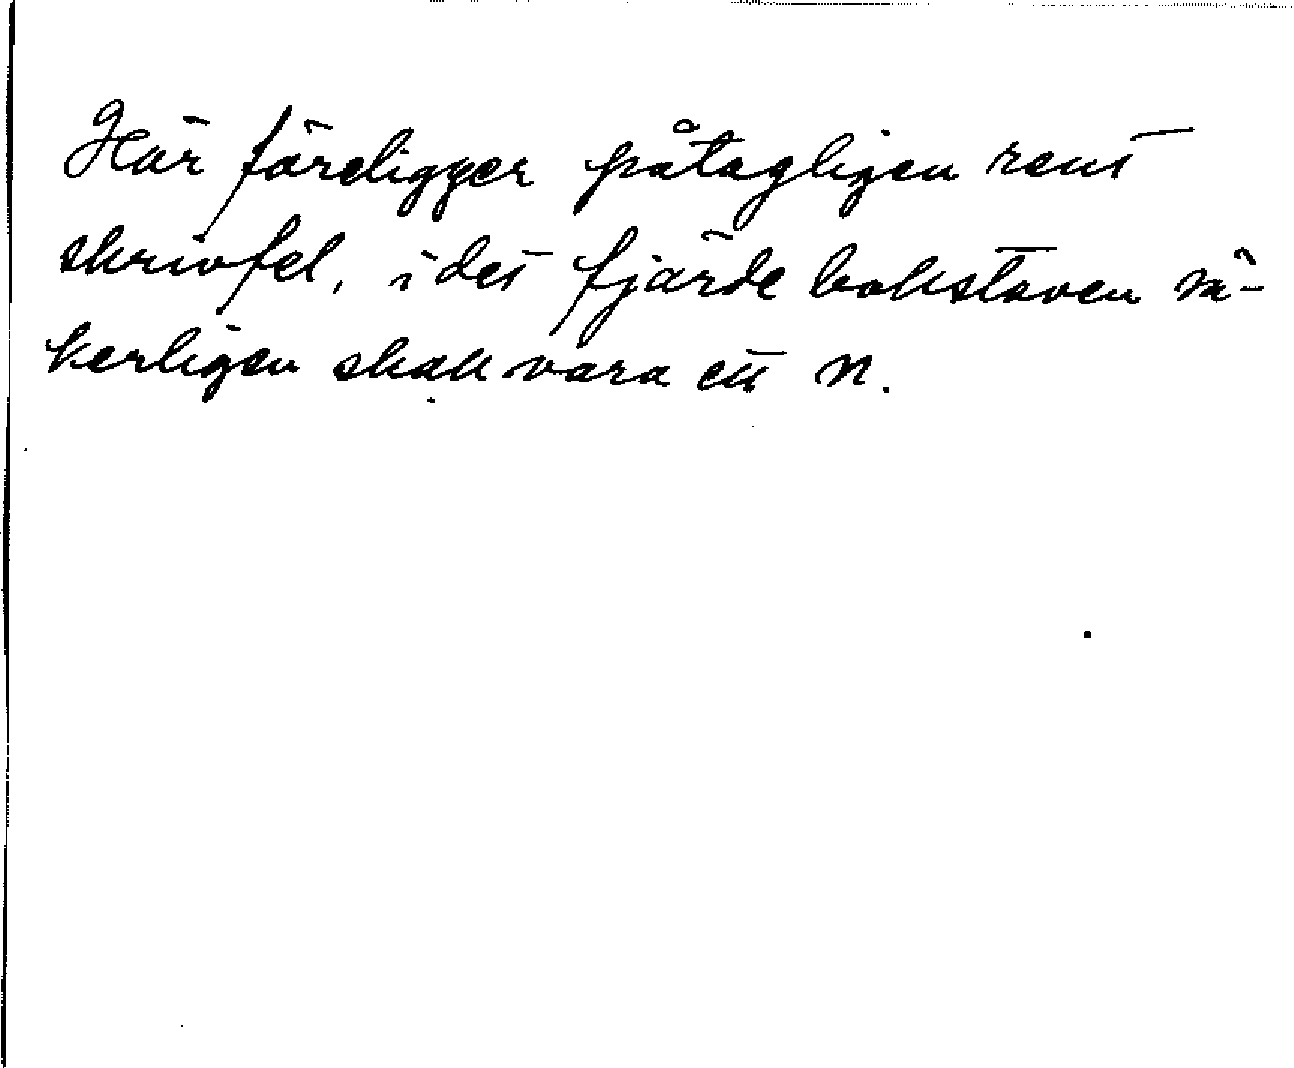 Här föreligger påtagligen rent
skrivfel, i det fjärde bokstaven sä-
kerligen skall vara ett n.